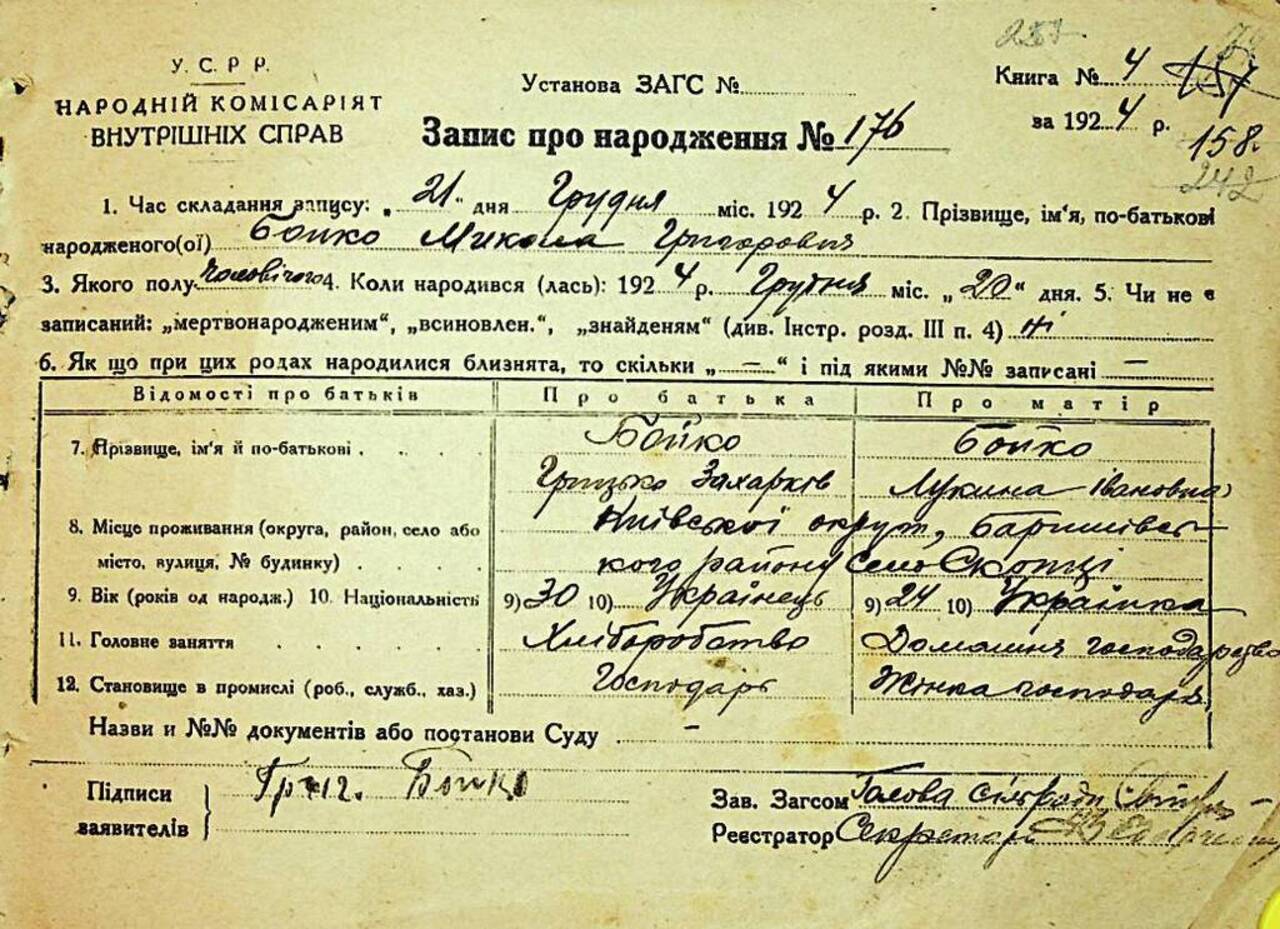 257
У. С. Р Р.
НАРОДНІЙ КОМІСАРІЯТ
ВНУТРІШНІХ СПРАВ
Установа ЗАГС №
Книга № 4 157
за 1924 р.
158.
242
Запис про народження № 176
1. Час складання запису: „21“ дня Грудня міс. 1924 р. 2. Прізвище, ім'я, по-батькові
народженого(ої) Бойко Микола Григорович
3. Якого полу Чоловічого 4. Коли народився (лась): 1924 р. Грудня міс. „20“ дня. 5. Чи не є
записаний: „мертвонародженим“, „всиновлен.“, „знайденям“ (див. Інстр. розд. III п. 4) ні
6. Як що при цих родах народилися близнята, то скільки „—“ і під якими №№ записані —
Відомості про батьків Про батька Про матір
7. Прізвище, ім'я й по-батькові . . . . Бойко Бойко
Грицько Захарків Лукина Івановна
8. Місце проживання (округа, район, село або Київської округ, Баришівсь-
місто, вулиця, № будинку) . . . . кого району село Скопці
9. Вік (років од народж.) 10. Національність 9) 30 10) Українець 9) 24 10) Українка
11. Головне заняття . . . . . . Хліборобство Домашня господарство
12. Становище в промислі (роб., служб., хаз.) Господарь Жінка господаря
Назви и №№ документів або постанови Суду —
Підписи
заявителів
Григ. Бойко
Зав. Загсом Голова сільради
Реєстратор Секретарь